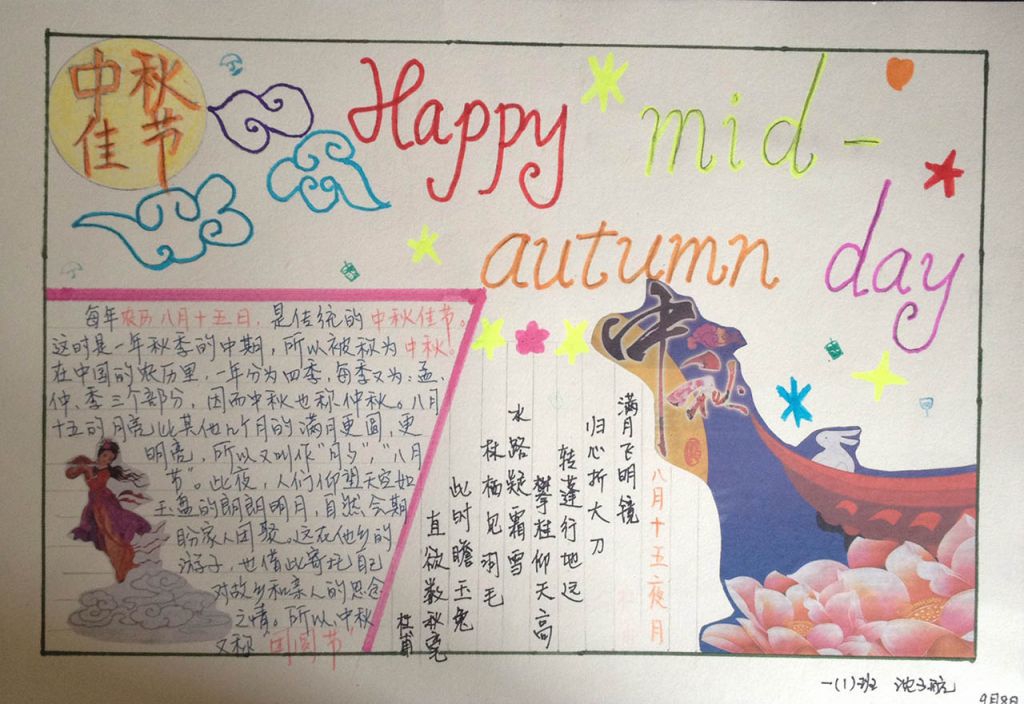 中秋
佳节
Happy mid-
autumn day
每年农历八月十五日，是传统的中秋佳节。
这时是一年秋季的中期，所以被称为中秋。
在中国的农历里，一年分为四季，每季又为：孟、
仲、季三个部分，因而中秋也称仲秋。八月
十五的月亮比其他几个月的满月更圆，更
明亮，所以又叫作“月夕”，“八月
节”。此夜，人们仰望天空如
玉盘的朗朗明月，自然会期
盼家人团聚。远在他乡的
游子，也借此寄托自己
对故乡和亲人的思念
之情。所以，中秋
又称“团圆节”
中秋
八月十五夜月
满月飞明镜
归心折大刀
转蓬行地远
攀桂仰天高
水路疑霜雪
林栖见羽毛
此时瞻玉兔
直欲数秋毫
杜甫
一(1)班
9月8日